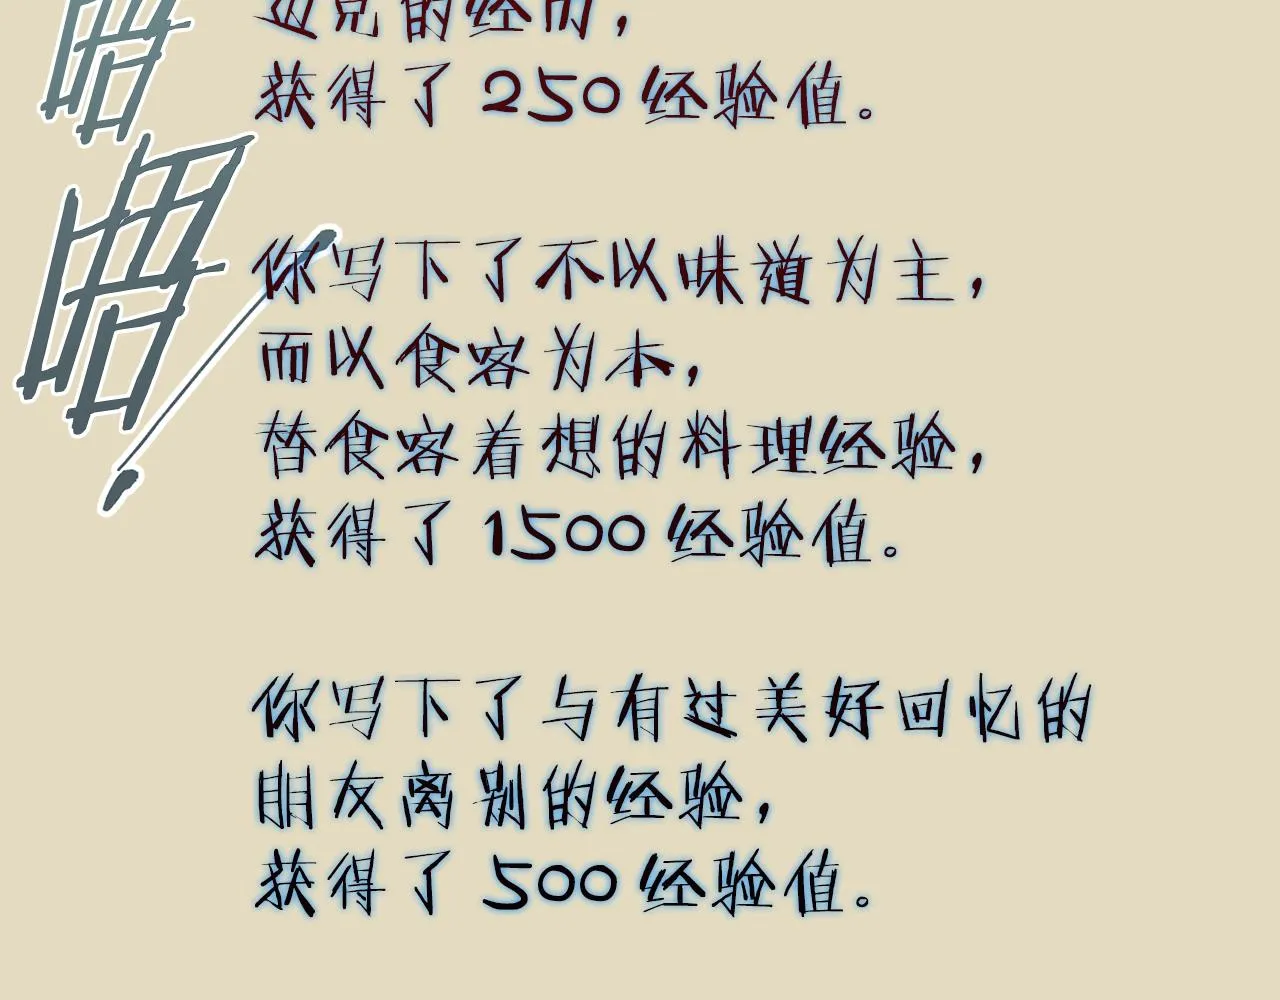 唔
获得了 350 经验值。
唔
你写下了不以味道为主，
而以食客为本，
替食客着想的料理经验，
获得了 1500 经验值。
你写下了与有过美好回忆的
朋友离别的经验，
获得了 500 经验值。